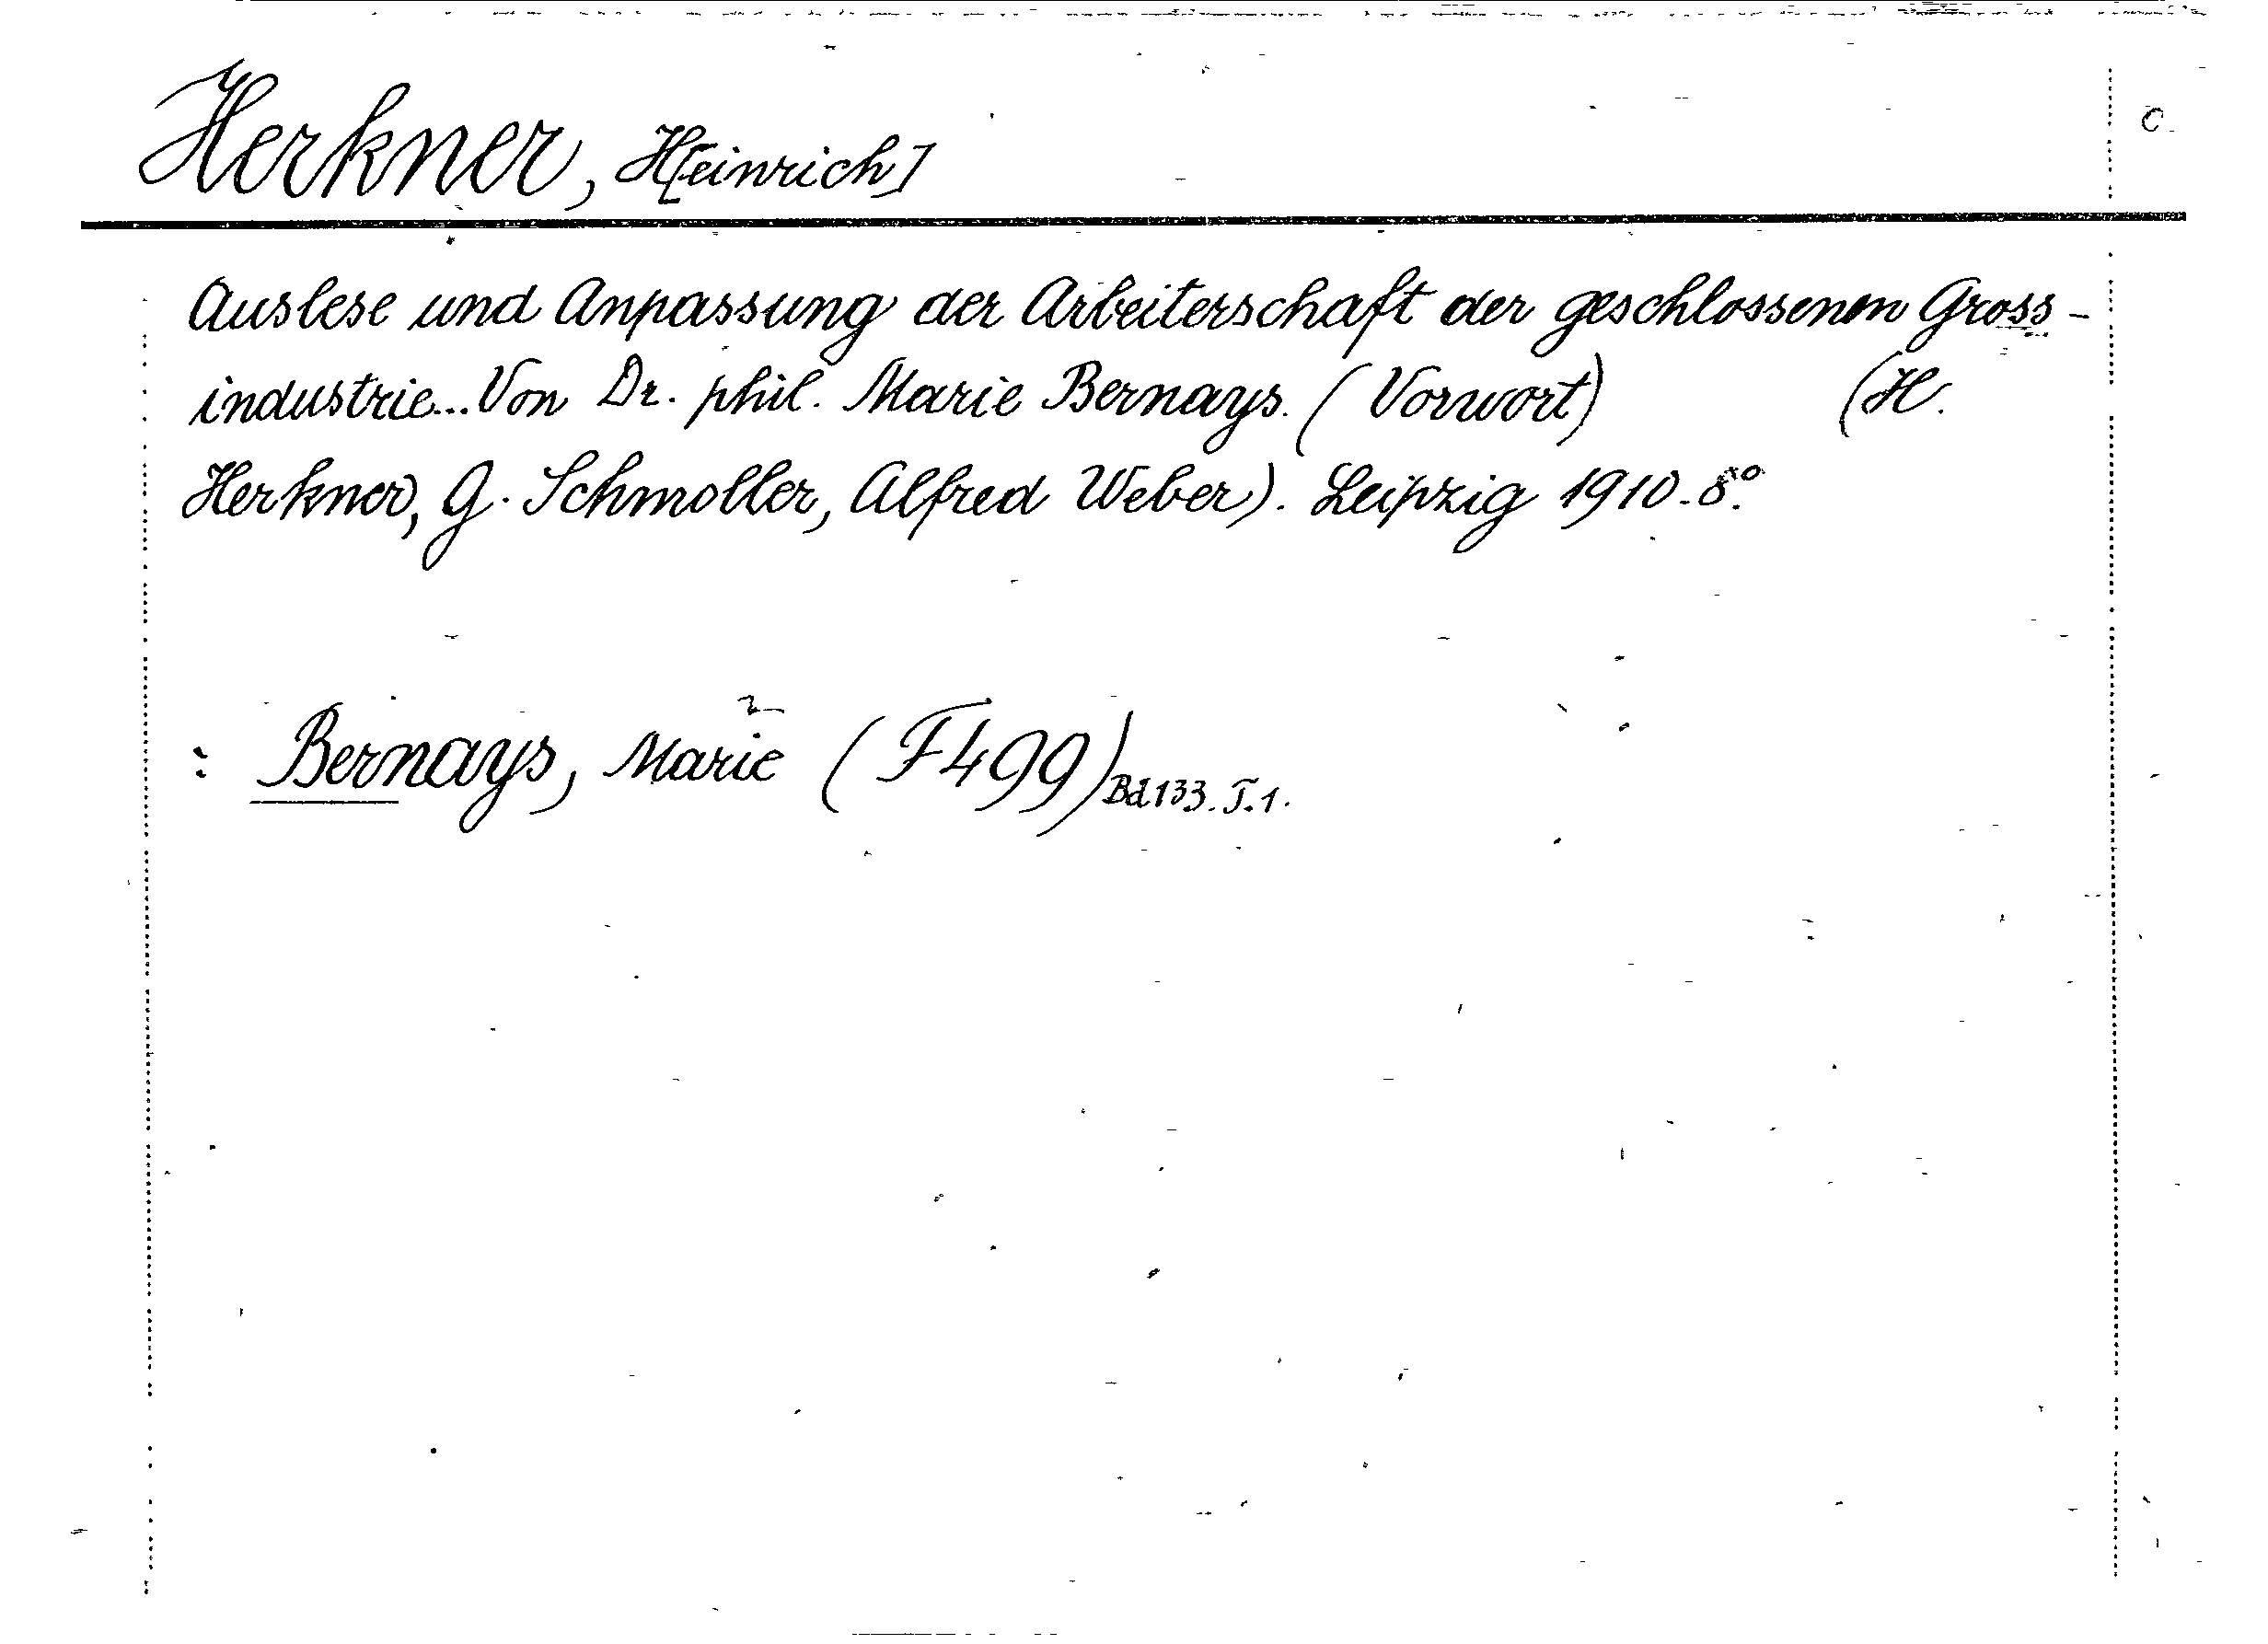 Herkner, H[einrich]
Auslese und Anpassung der Arbeiterschaft der geschlossenen Gross-
industrie... Von Dr. phil. Marie Bernays. (Vorwort) (H.
Herkner, G. Schmoller, Alfred Weber). Leipzig 1910. 8°.
: Bernays, Marie (F499) Bd.133. T.1.